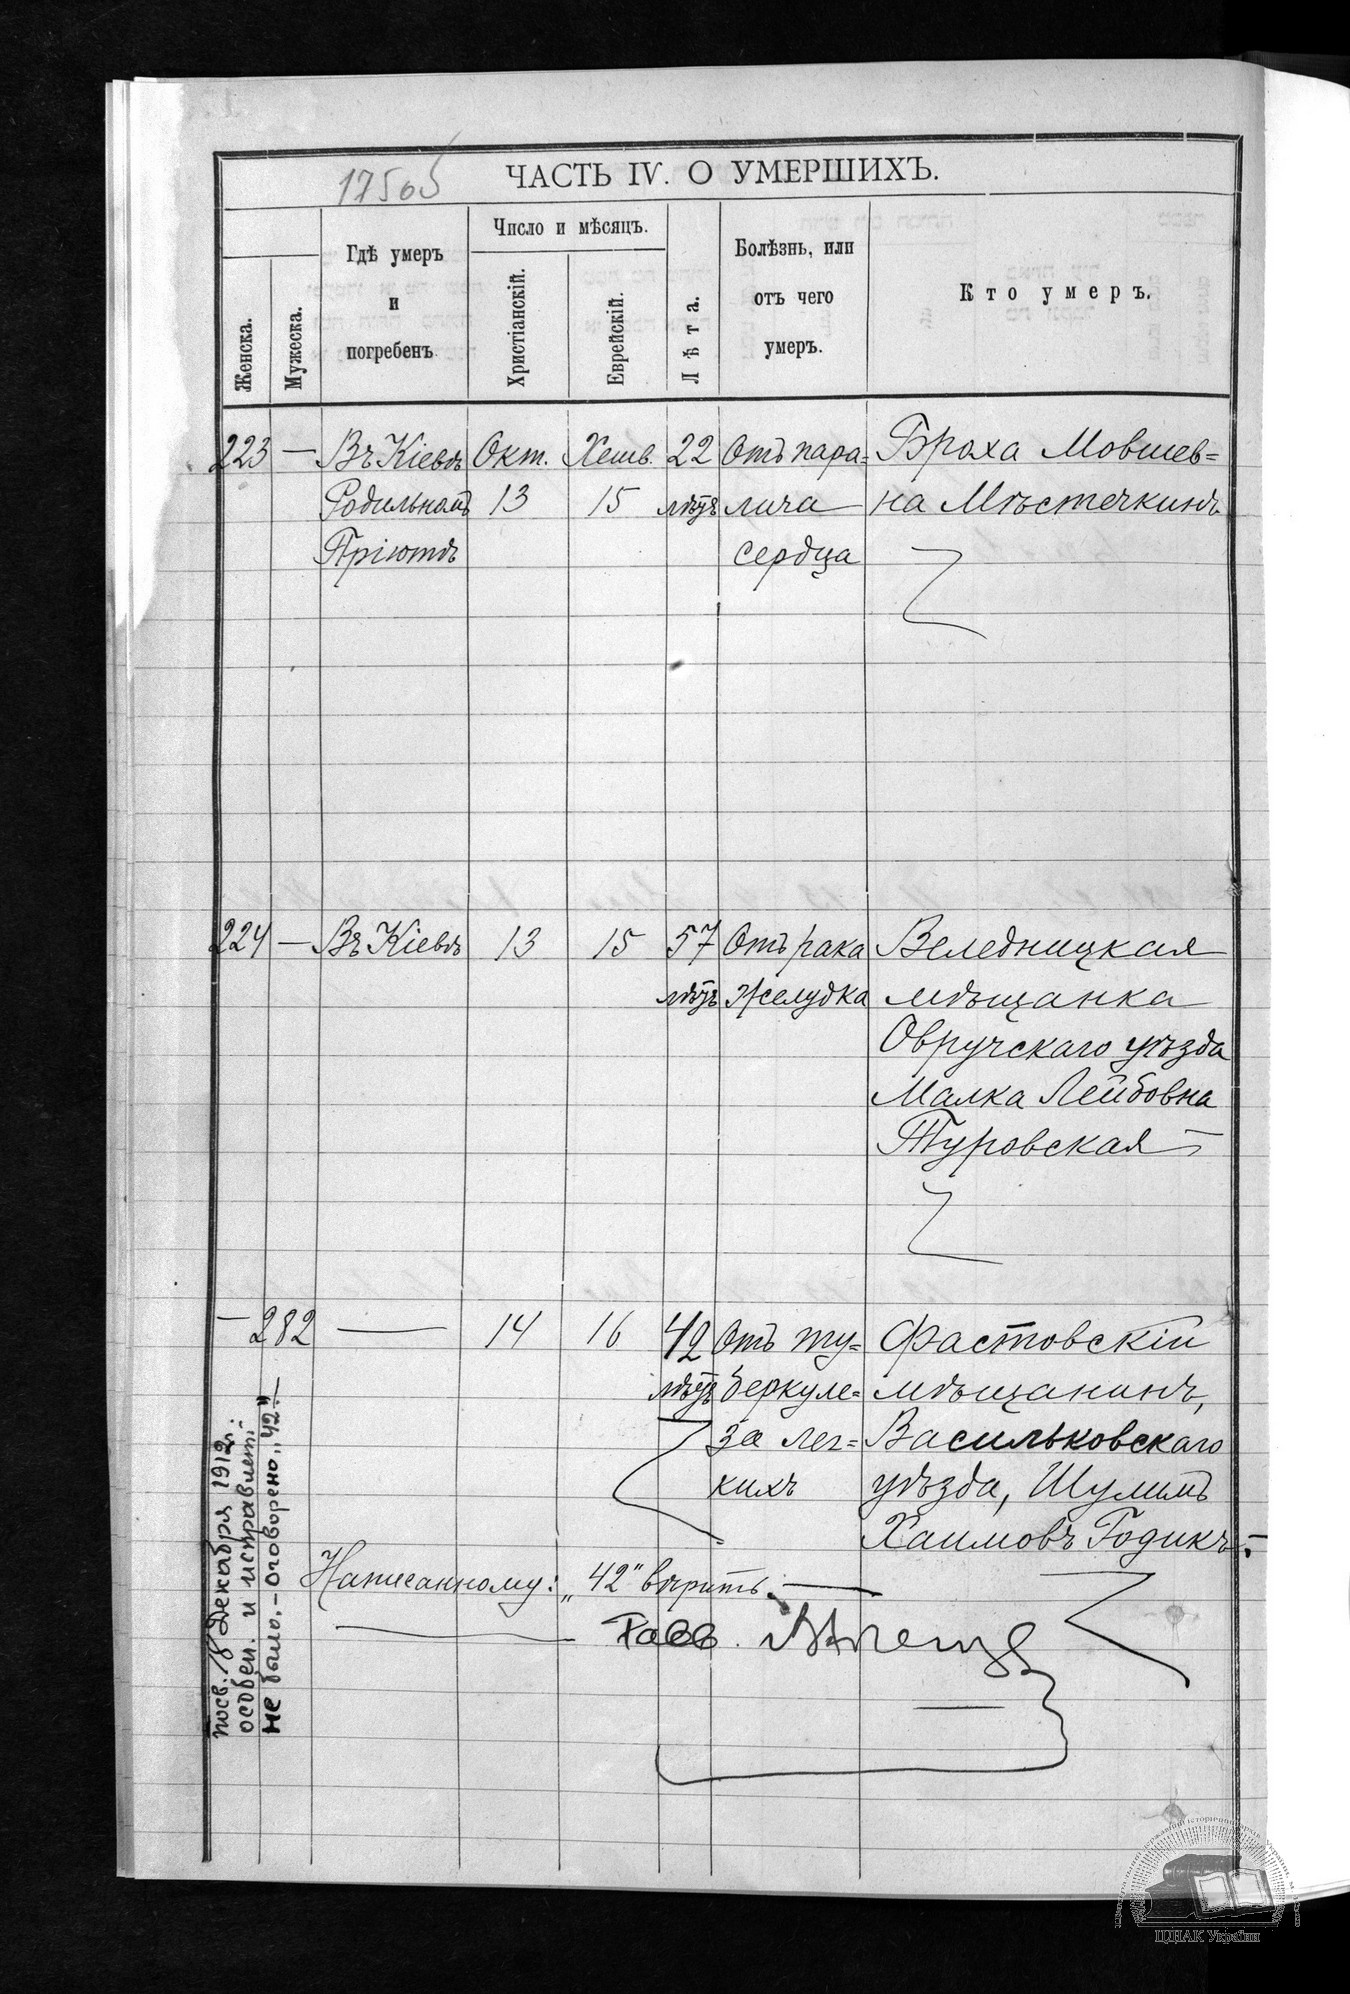 17505
ЧАСТЬ IV. О УМЕРШИХЪ.
Женска.
Мужеска.
Гдѣ умеръ
и
погребенъ
Число и мѣсяцъ.
Христіанскій.
Еврейскій.
Лѣта.
Болѣзнь, или
отъ чего
умеръ.
Кто умеръ.
223 — Въ Кіевѣ Окт. Хешв. 22 Отъ пара= Броха Мовшев=
Родильномъ 13 15 лѣтъ лича на Мѣстечкинъ
Пріютѣ сердца
224 — Въ Кіевѣ 13 15 57 Отъ рака Веледницкая
лѣтъ желудка мѣщанка
Овручскаго уѣзда
Малка Лейбовна
Туровская —
— 282 — 14 16 42 Отъ ту= Фастовскій
лѣтъ беркуле= мѣщанинъ,
за лег= Васильковскаго
кихъ уѣзда, Шулимъ
Хаимовъ Годикъ.—
Написанному: „42" вѣрить. —
Равв.
посв. 18 Декабря 1912 г.
особен. и исправлені
не было. — Оговорено „42" —
ЦДІАК України